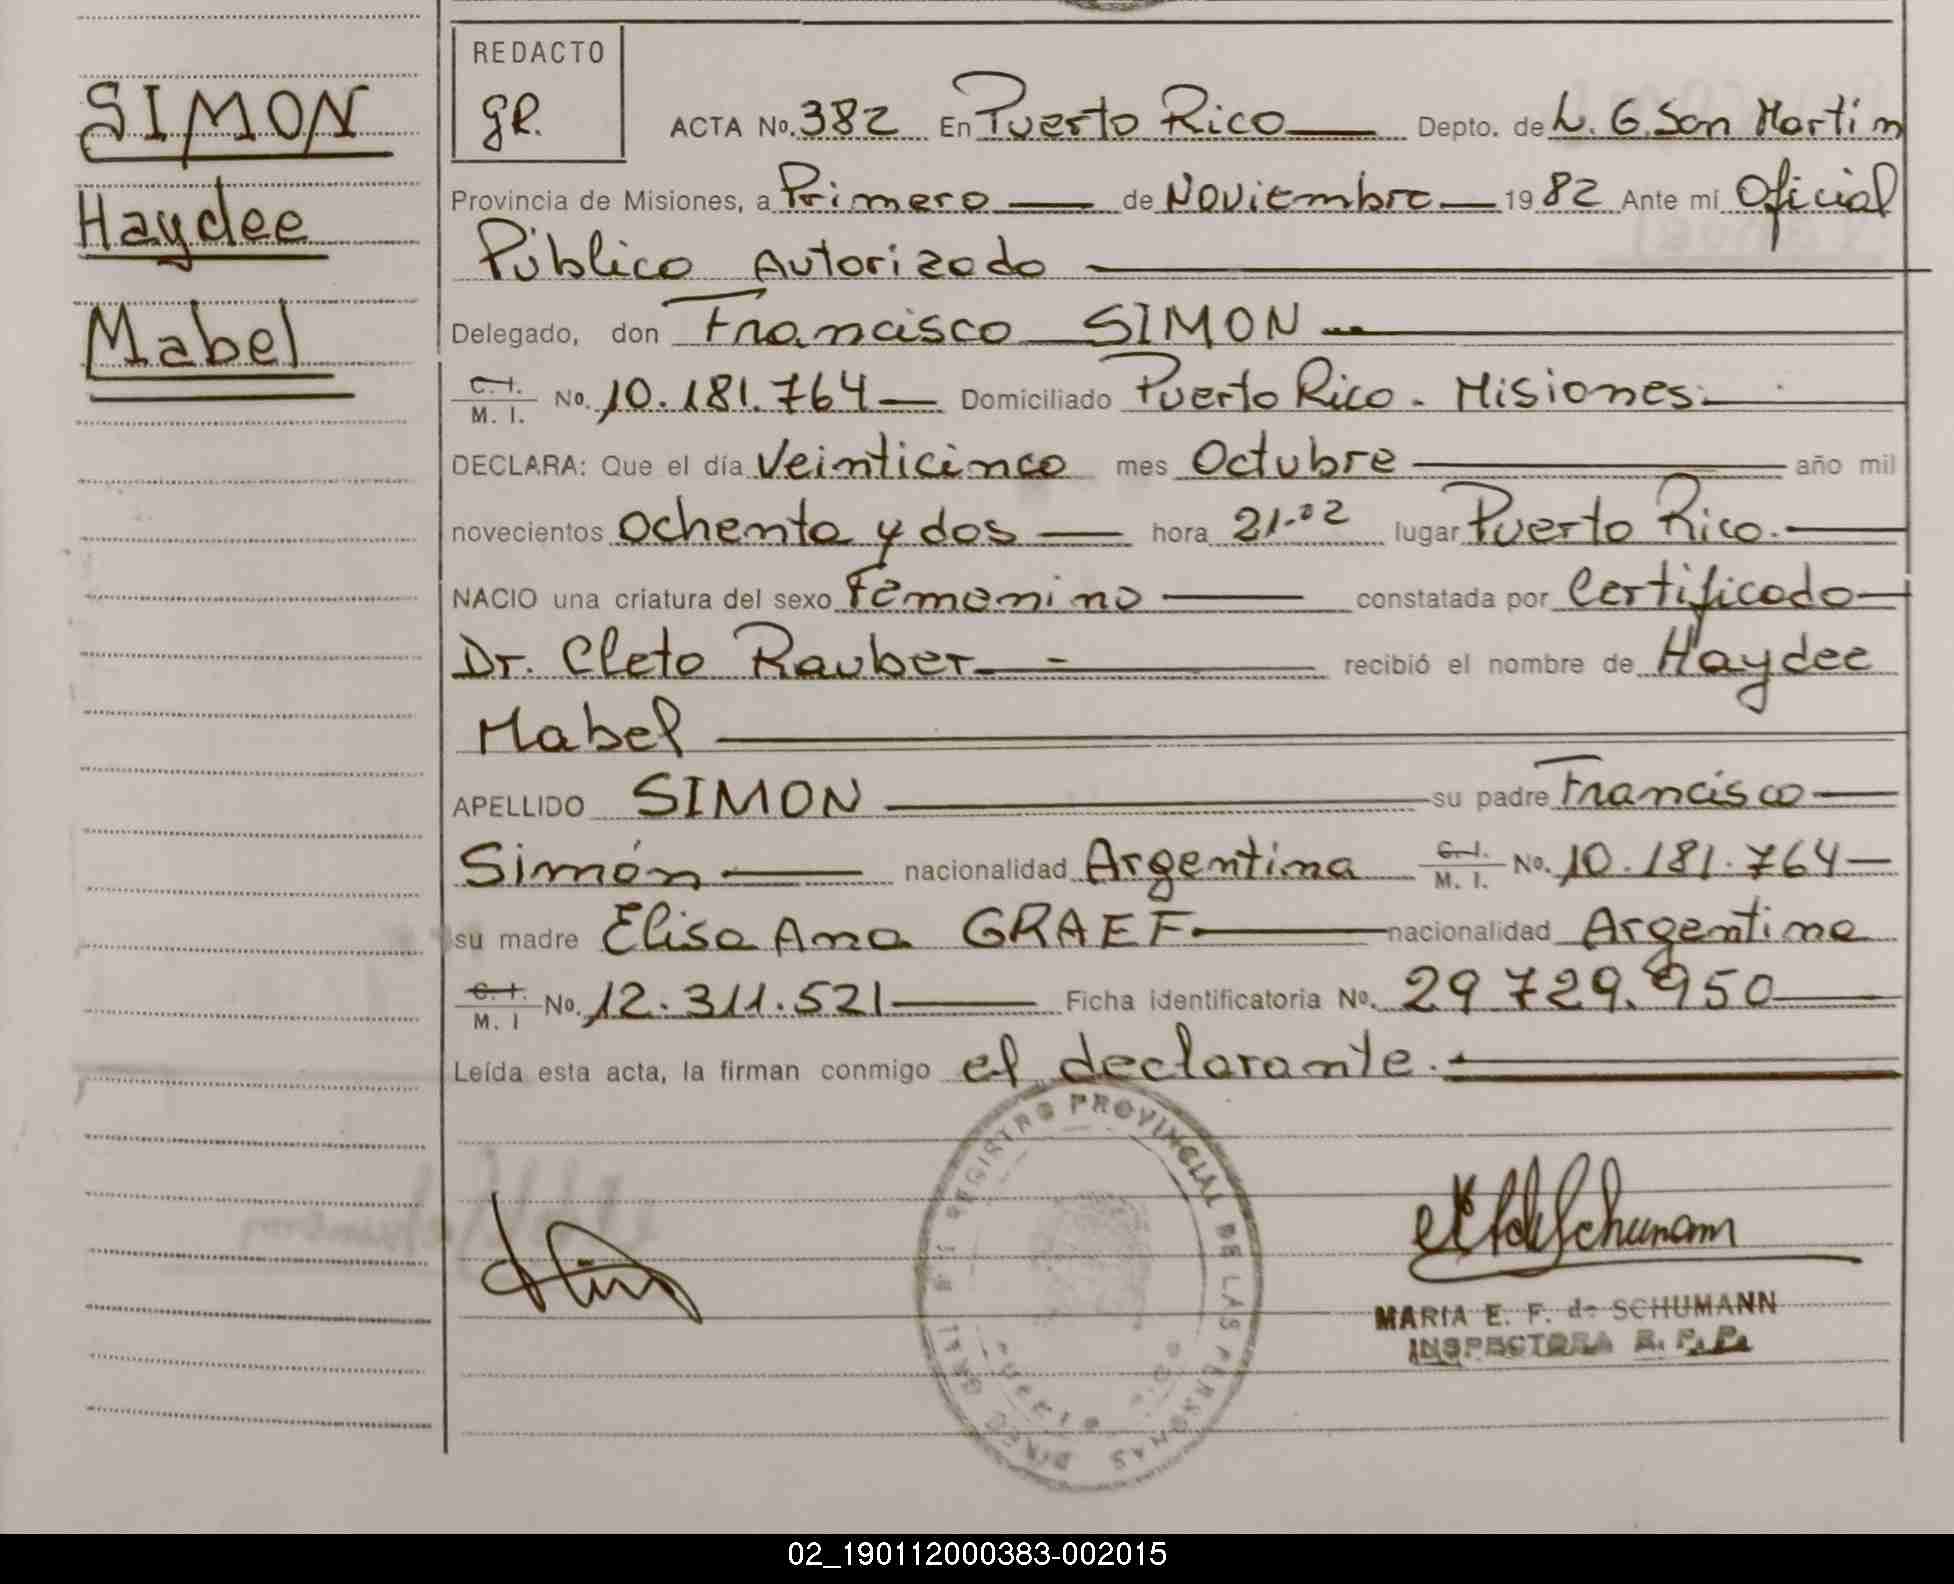 SIMON
Haydee
Mabel
REDACTO
GR.
ACTA No. 382 En Puerto Rico Depto. de L. G. San Martin
Provincia de Misiones, a Primero de Noviembre 1982 Ante mi Oficial
Público Autorizado
Delegado, don Francisco SIMON
C. I. / M. I. No. 10.181.764 Domiciliado Puerto Rico - Misiones.
DECLARA: Que el día Veinticinco mes Octubre año mil
novecientos Ochenta y dos hora 21-02 lugar Puerto Rico.
NACIO una criatura del sexo Femenino constatada por Certificado
Dr. Cleto Rauber recibió el nombre de Haydee
Mabel
APELLIDO SIMON su padre Francisco
Simón nacionalidad Argentina C. I. / M. I. No. 10.181.764
su madre Elisa Ana GRAEF nacionalidad Argentina
C. I. / M. I No. 12.311.521 Ficha identificatoria No. 29729.950
Leída esta acta, la firman conmigo el declarante.
REGISTRO PROVINCIAL DE LAS PERSONAS
MARIA E. F. de SCHUMANN
INSPECTORA R. P. P.
02_190112000383-002015